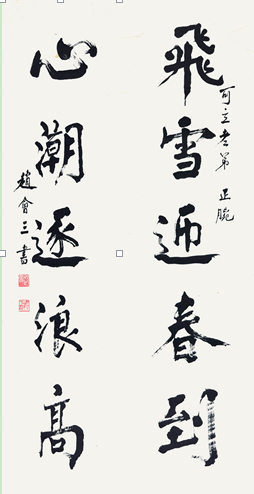 飛雪迎春到
可立老弟 正腕
心潮逐浪高
趙會三書